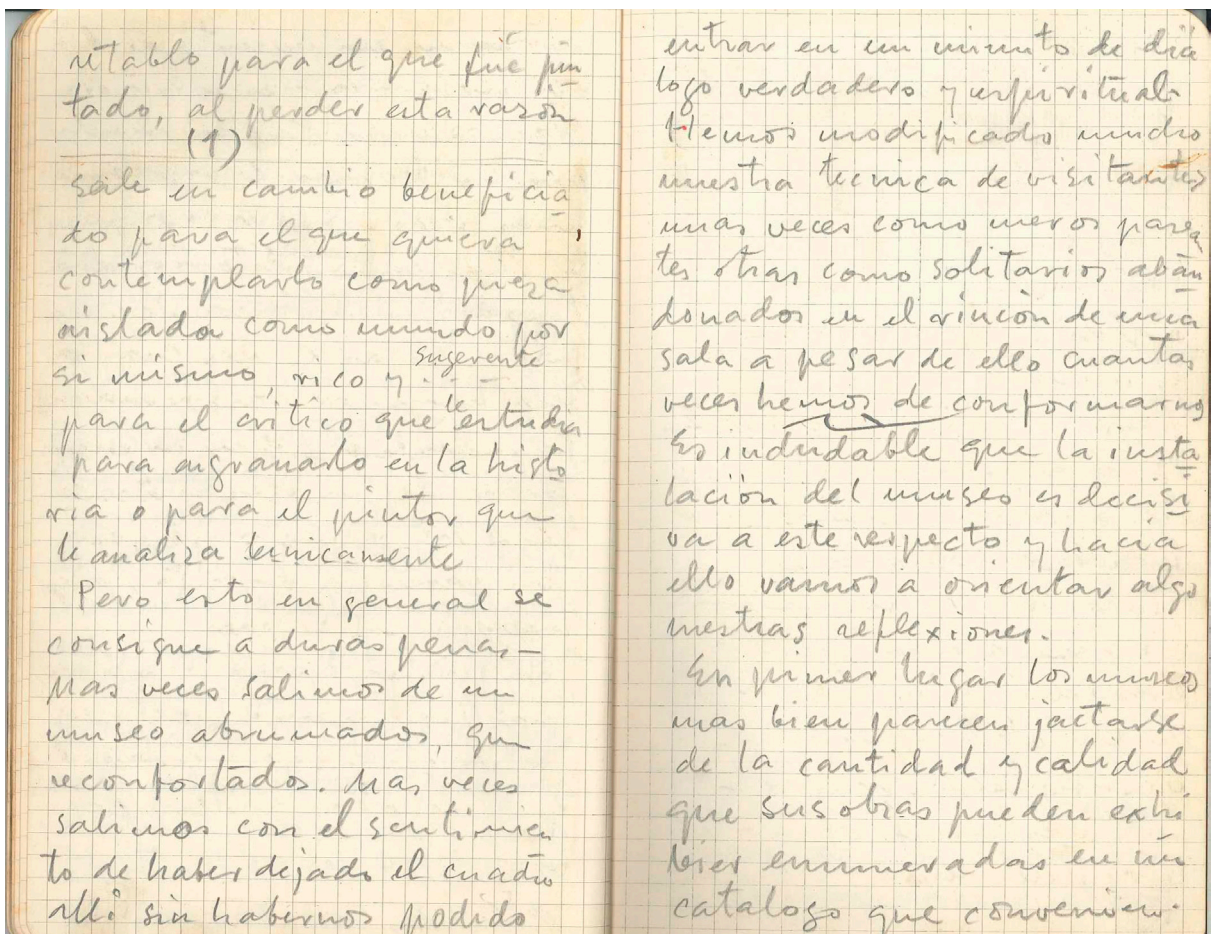 retablo para el que fué pin
tado, al perder esta razón
(1)
sale en cambio beneficia
do para el que quiera
contemplarlo como pieza
aislada como mundo por
si mismo, rico y sugerente
para el critico que le estudia
para engranarlo en la histo
ria o para el pintor que
le analiza tecnicamente
Pero esto en general se
consigue a duras penas—
Mas veces salimos de un
museo abrumados, que
reconfortados. Mas veces
salimos con el sentimien
to de haber dejado el cuadro
alli sin habernos podido
entrar en un minuto de diá
logo verdadero y espiritual.
Hemos modificado mucho
nuestra tecnica de visitantes
unas veces como meros pasean
tes otras como solitarios aban
donados en el rincón de una
sala a pesar de ello cuantas
veces hemos de conformarnos
Es indudable que la insta
lación del museo es decisi
va a este respecto y hacia
ello vamos a orientar algo
nuestras reflexiones.
En primer lugar los museos
mas bien parecen jactarse
de la cantidad y calidad
que sus obras pueden exhi
bier enumeradas en un
catalogo que convenien.